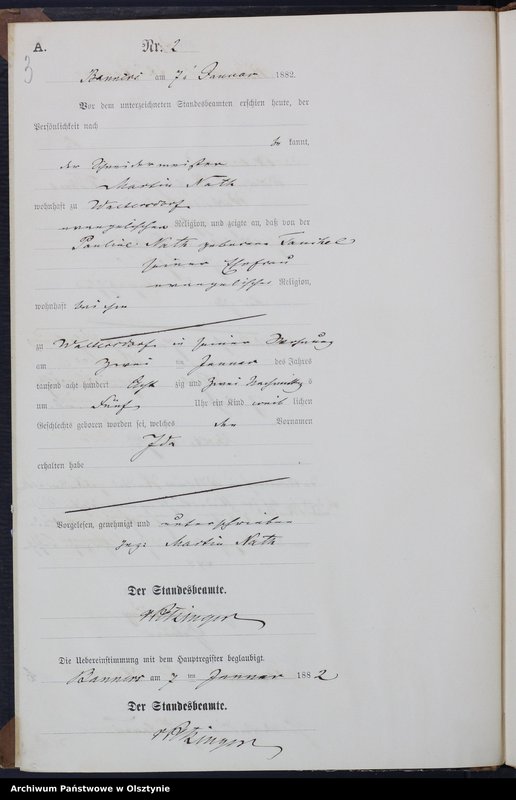 A. Nr. 2
3
Banners am 7. Januar 1882.
Vor dem unterzeichneten Standesbeamten erschien heute, der
Persönlichkeit nach
be kannt,
der Schneidermeister
Martin Nath
wohnhaft zu Waltersdorf
evangelischen Religion, und zeigte an, daß von der
Pauline Nath geborene
seiner Ehefrau
evangelischer Religion,
wohnhaft bei ihm
zu Waltersdorf in seiner Wohnung
am Zwei ten Januar des Jahres
tausend acht hundert Acht zig und Zwei Nachmittags
um Fünf Uhr ein Kind weib lichen
Geschlechts geboren worden sei, welches den Vornamen
Ida
erhalten habe
Vorgelesen, genehmigt und unterschrieben
gez: Martin Nath
Der Standesbeamte.
Die Uebereinstimmung mit dem Hauptregister beglaubigt.
Banners am 7 ten Januar 1882
Der Standesbeamte.
Archiwum Państwowe w Olsztynie